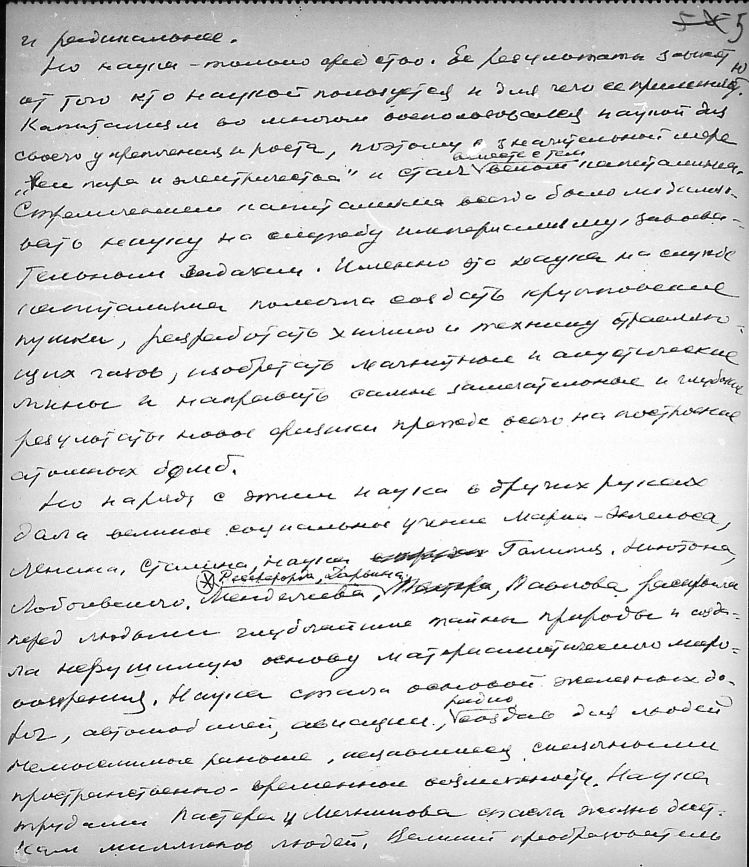 5
и радикальнее.
Но наука – только средство. Ее результаты зависят
от того кто наукой пользуется и для чего ее применяет.
Капитализм во многом воспользовался наукой для
своего укрепления и роста, поэтому в значительной мере
„век пара и электричества" и стал вместе с тем веком капитализма.
Стремлением капитализма всегда было мобилизо-
вать науку на службу империализму, завоева-
тельным задачам. Именно эта наука на службе
капитализма помогла создать крупповские
пушки, разработать химию и технику отравляю-
щих газов, изобретать магнитные и акустические
мины и направить самые замечательные и глубокие
результаты новой физики прежде всего на построение
атомных бомб.
Но наряду с этим наука в других руках
дала великое социальное учение Маркса-Энгельса,
Ленина, Сталина, наука Галилея, Ньютона,
Лобачевского, Менделеева, Резерфорда, Дарвина, Павлова раскрыла
перед людьми глубочайшие тайны природы и созда-
ла нерушимую основу материалистического миро-
воззрения. Наука стала основой железных до-
рог, автомобилей, авиации, радио, создав для людей
немыслимые раньше, казавшиеся сказочными
пространственно-временные возможности. Наука
трудами Пастера и Мечникова спасла жизнь десят-
кам миллионов людей. Великий преобразователь